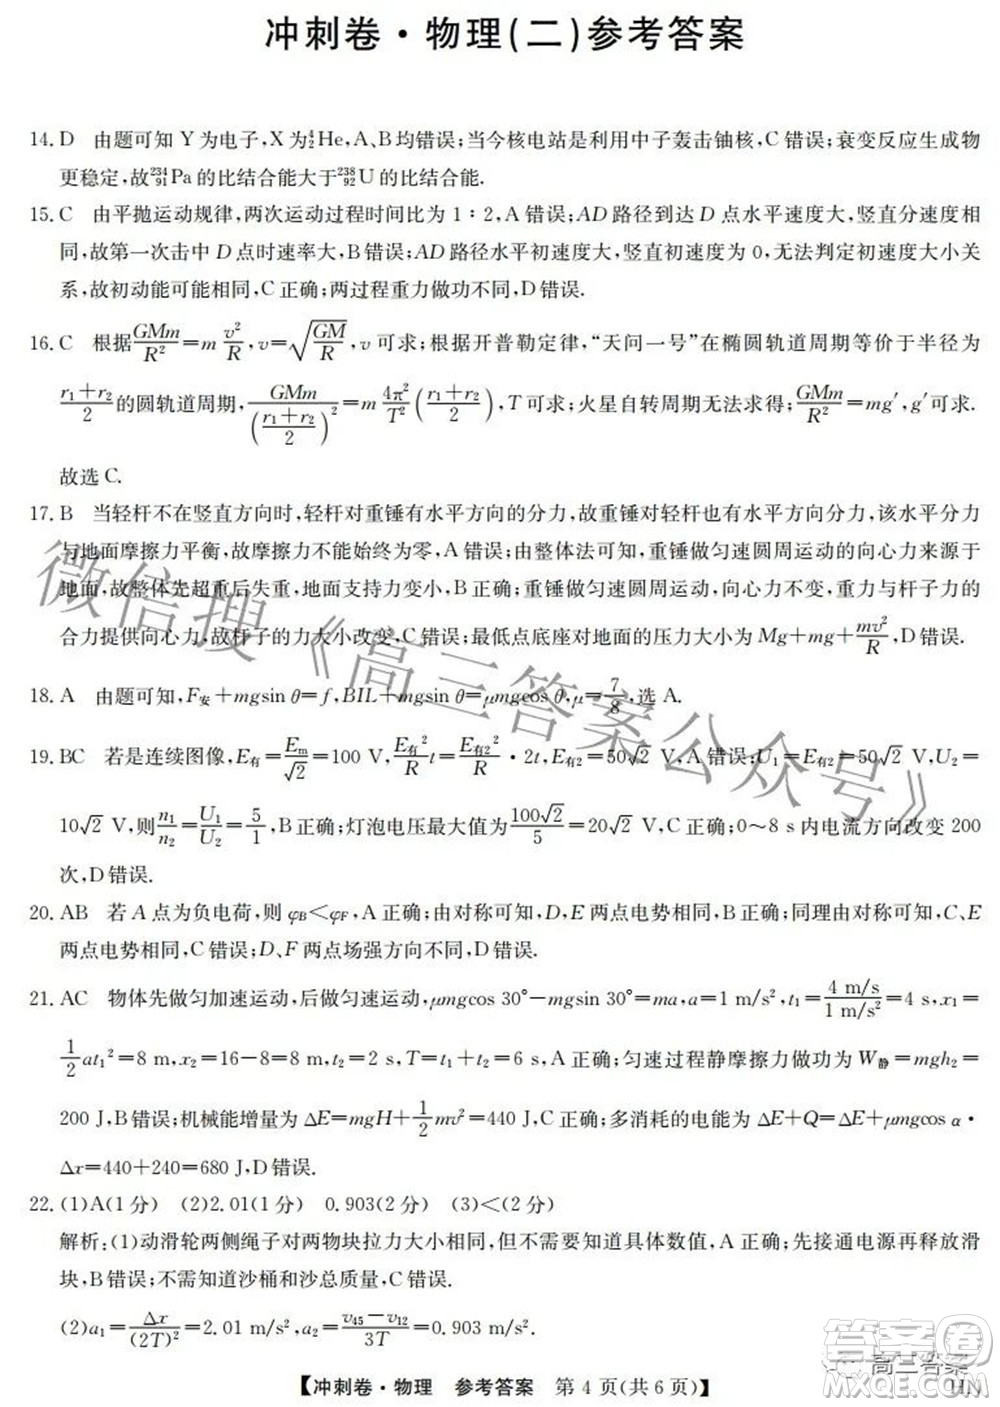 冲刺卷·物理(二)参考答案
14. D 由题可知 Y 为电子,X 为⁴₂He,A、B 均错误;当今核电站是利用中子轰击铀核,C 错误;衰变反应生成物
更稳定,故²³⁴₉₁Pa 的比结合能大于²³⁸₉₂U 的比结合能.
15. C 由平抛运动规律,两次运动过程时间比为 1∶2,A 错误;AD 路径到达 D 点水平速度大,竖直分速度相
同,故第一次击中 D 点时速率大,B 错误;AD 路径水平初速度大,竖直初速度为 0,无法判定初速度大小关
系,故初动能可能相同,C 正确;两过程重力做功不同,D 错误.
16. C 根据GMm/R²=m v²/R,v=√(GM/R),v 可求;根据开普勒定律,“天问一号”在椭圆轨道周期等价于半径为
(r₁+r₂)/2的圆轨道周期,GMm/((r₁+r₂)/2)²=m 4π²/T²((r₁+r₂)/2),T 可求;火星自转周期无法求得;GMm/R²=mg′,g′可求.
故选 C.
17. B 当轻杆不在竖直方向时,轻杆对重锤有水平方向的分力,故重锤对轻杆也有水平方向分力,该水平分力
与地面摩擦力平衡,故摩擦力不可能始终为零,A 错误;由整体法可知,重锤做匀速圆周运动的向心力来源于
地面,故整体系统先超重后失重,地面支持力变小,B 正确;重锤做匀速圆周运动,向心力不变,重力与杆子力的
合力提供向心力,故杆子的力大小改变,C 错误;最低点底座对地面的压力大小为 Mg+mg+mv²/R,D 错误.
18. A 由题可知,F安+mgsin θ=f,BIL+mgsin θ=μmgcos θ,μ=7/8,选 A.
19. BC 若是连续图像,E有=Em/√2=100 V,E有²/R t=E有2²/R·2t,E有2=50√2 V,A 错误;U₁=E有2=50√2 V,U₂=
10√2 V,则n₁/n₂=U₁/U₂=5/1,B 正确;灯泡电压最大值为100√2/5=20√2 V,C 正确;0~8 s 内电流方向改变 200
次,D 错误.
20. AB 若 A 点为负电荷,则 φB<φF,A 正确;由对称可知,D、E 两点电势相同,B 正确;同理由对称可知,C、E
两点电势相同,C 错误;D、F 两点场强方向不同,D 错误.
21. AC 物体先做匀加速运动,后做匀速运动,μmgcos 30°-mgsin 30°=ma,a=1 m/s²,t₁=4 m/s/1 m/s²=4 s,x₁=
1/2at₁²=8 m,x₂=16-8=8 m,t₂=2 s,T=t₁+t₂=6 s,A 正确;匀速过程静摩擦力做功为 W静=mgh₂=
200 J,B 错误;机械能增量为 ΔE=mgH+1/2mv²=440 J,C 正确;多消耗的电能为 ΔE+Q=ΔE+μmgcos α·
Δx=440+240=680 J,D 错误.
22. (1)A(1 分) (2)2.01(1 分) 0.903(2 分) (3)<(2 分)
解析:(1)动滑轮两侧绳子对两物块拉力大小相同,但是不需要知道具体数值,A 正确;先接通电源再释放滑
块,B 错误;不需知道沙桶和沙总质量,C 错误.
(2)a₁=Δx/(2T)²=2.01 m/s²,a₂=(v₄₅-v₁₂)/3T=0.903 m/s².
【冲刺卷·物理 参考答案 第 4 页(共 6 页)】
HN
微信搜《高三答案公众号》
高三答案
答案圈